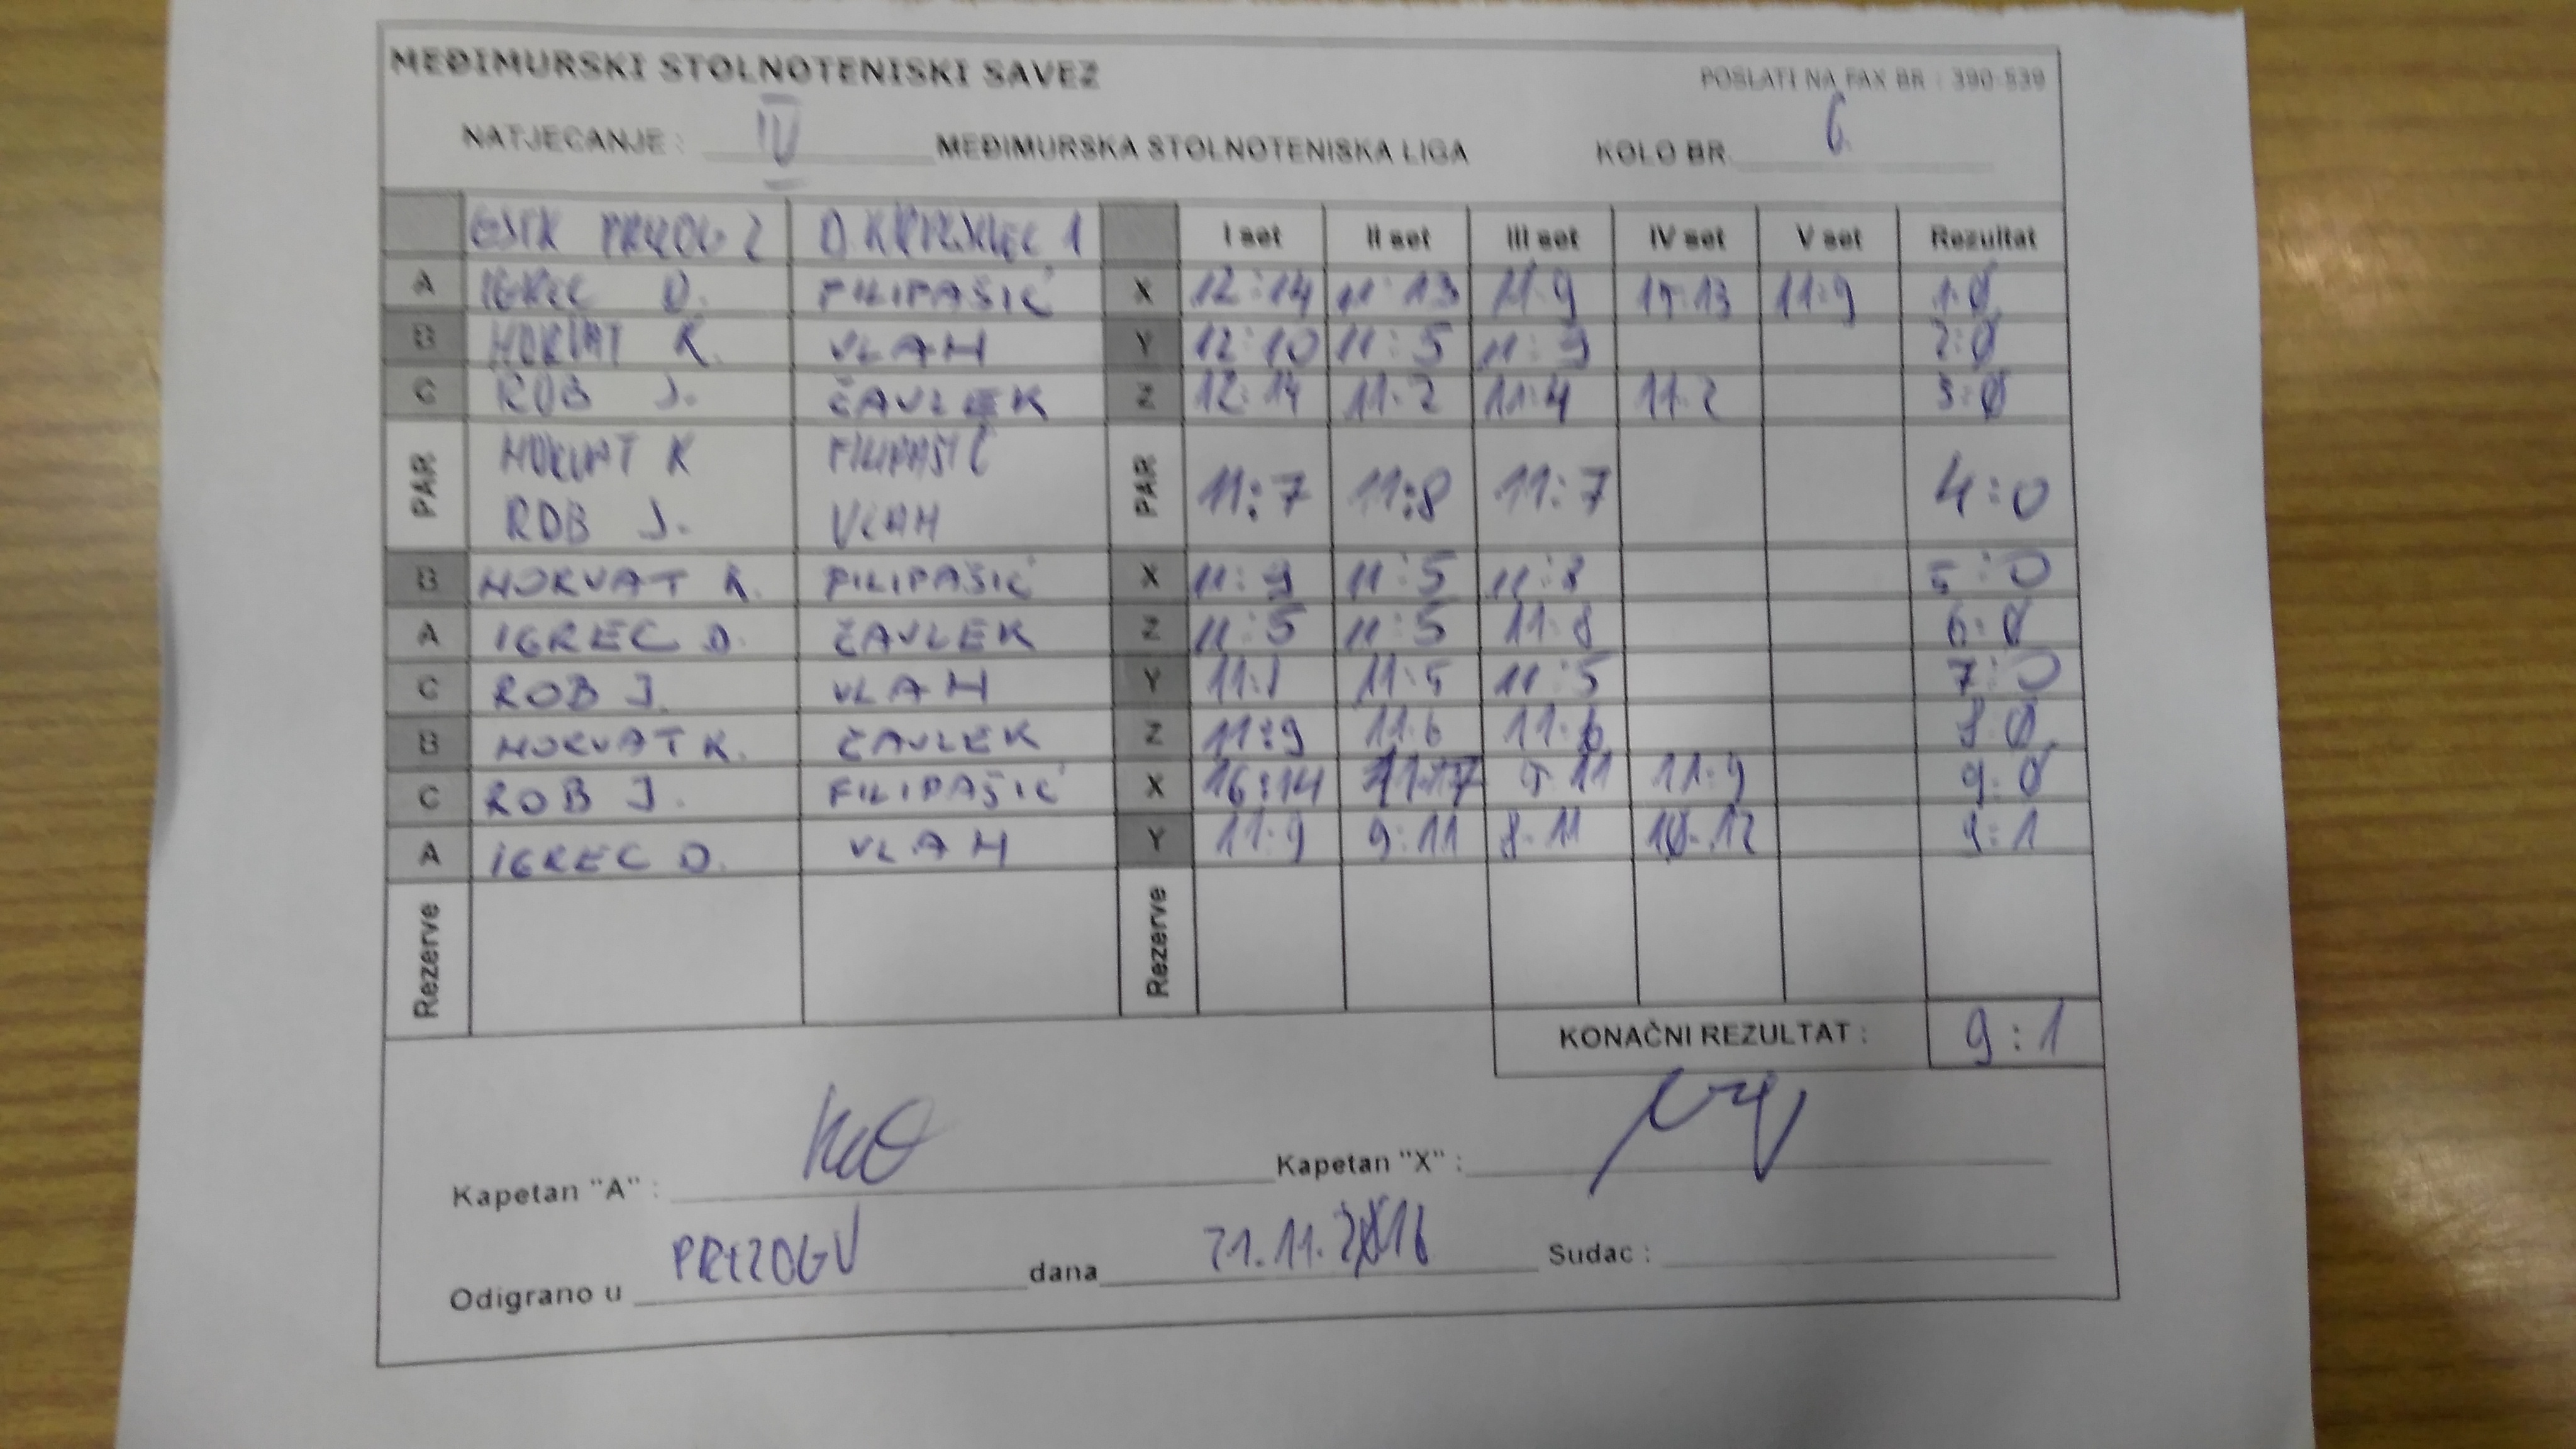 MEĐIMURSKI STOLNOTENISKI SAVEZ POSLATI NA FAX BR : 390-539
NATJECANJE : IV MEĐIMURSKA STOLNOTENISKA LIGA KOLO BR. 6.
GSTK 2 1 I set II set III set IV set V set Rezultat
A IGREC D. FILIPAŠIĆ X 12:14 11:13 11:9 15:13 11:9 1:0
B HORVAT K. VLAH Y 12:10 11:5 11:9 2:0
C ROB J. ČAVLEK Z 12:14 11:2 11:4 11:2 3:0
PAR HORVAT K FILIPAŠIĆ PAR 11:7 11:8 11:7 4:0
ROB J. VLAH
B HORVAT K. FILIPAŠIĆ X 11:9 11:5 11:8 5:0
A IGREC D. ČAVLEK Z 11:5 11:5 11:8 6:0
C ROB J. VLAH Y 11:1 11:5 11:5 7:0
B HORVAT K. ČAVLEK Z 11:9 11:6 11:6 8:0
C ROB J. FILIPAŠIĆ X 16:14 5:11 11:9 9:0
A IGREC D. VLAH Y 11:9 9:11 8:11 10:12 9:1
Rezerve Rezerve
KONAČNI REZULTAT : 9:1
Kapetan "A" : Kapetan "X" :
Odigrano u dana 21.11.2016 Sudac :